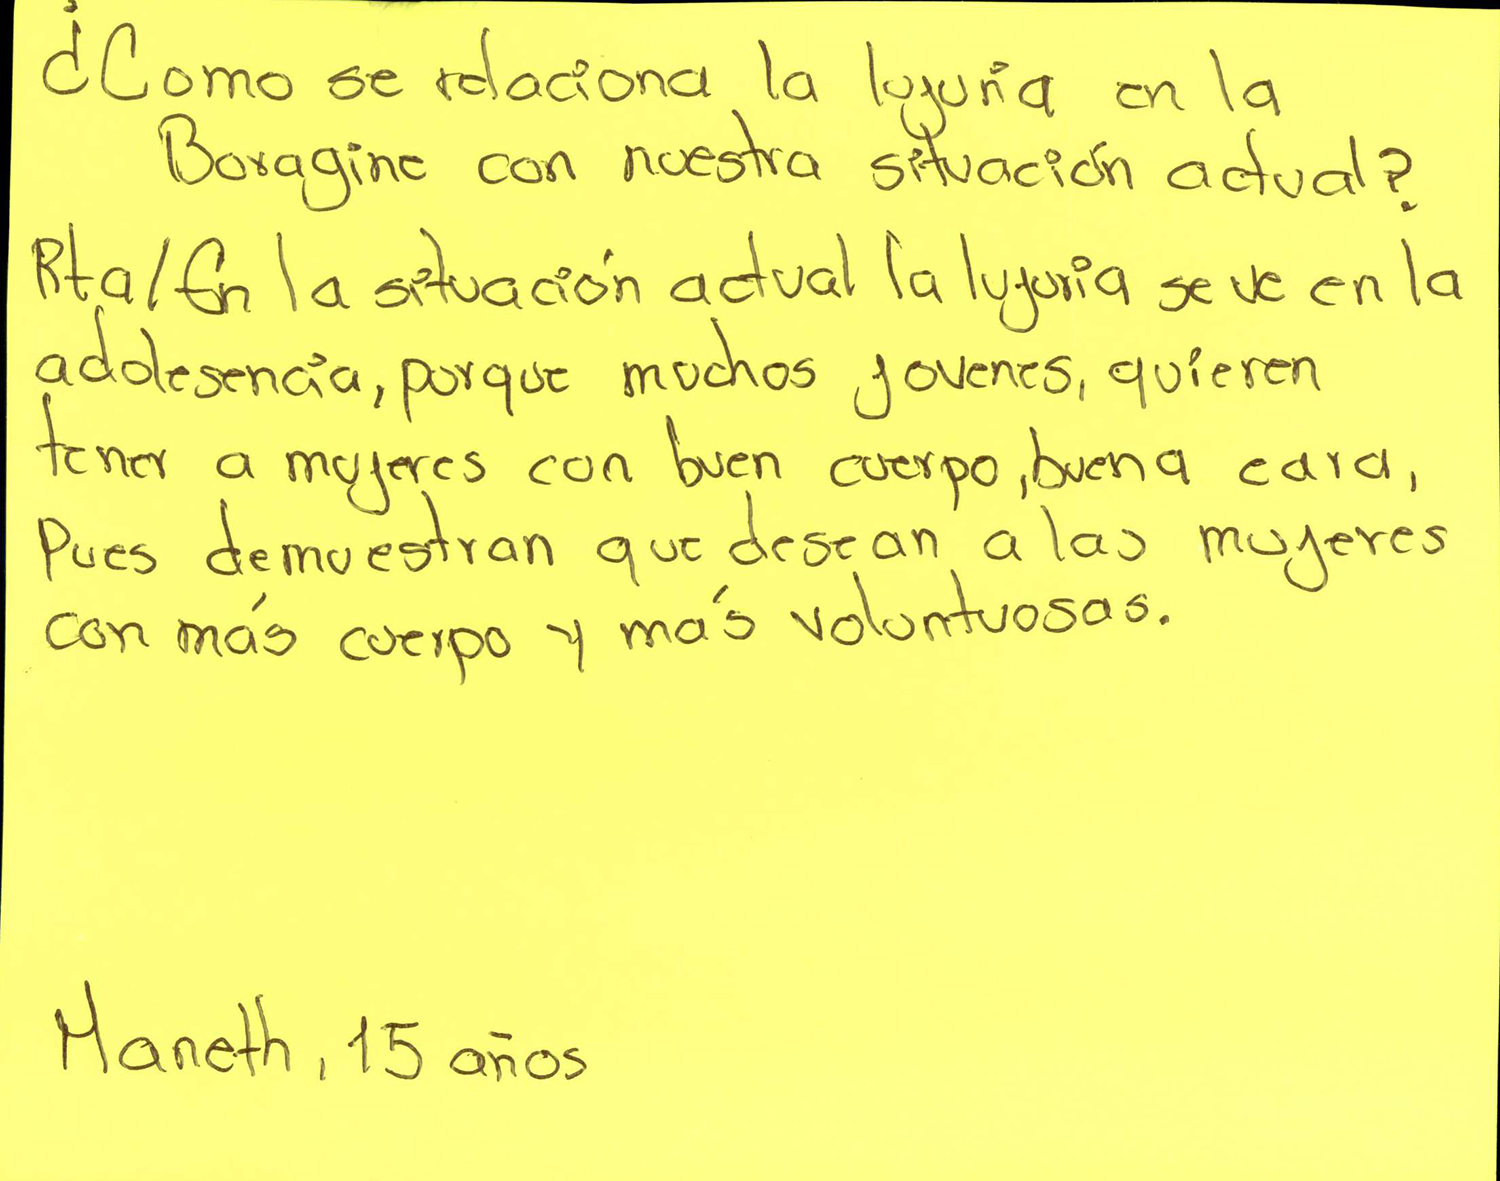 ¿Como se relaciona la lujuria en la
Boragine con nuestra situación actual?
Rta/ En la situación actual la lujuria se ve en la
adolesencia, porque muchos jovenes, quieren
tener a mujeres con buen cuerpo, buena cara,
Pues demuestran que desean a las mujeres
con más cuerpo y más voluntuosas.
Maneth, 15 años